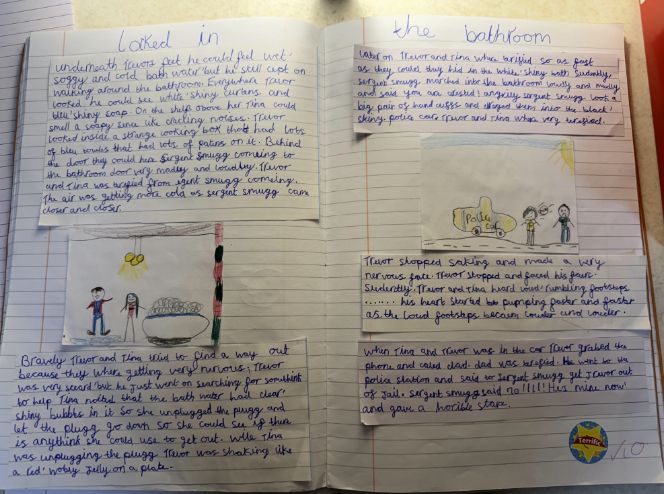 locked in
underneath Trevors feet he could feel wet'
soggy and cold bath water' but he still cept on
walking around the bathroom. Everywhere Trevor
looked he could see white' shiny curtans and
bleu' shiny soap. On the shelf above her Tina could
smell a soapy sence like cracling noises. Trevor
looked inside a strange looking box that had lots
of bleu towles that had lots of patens on it. Behind
the door they could hear Sergent Smugg comeing to
the bathroom door very madley and loudley. Trevor
and Tina was terafied from sgent smugg comeing.
The air was getting more cold as sergent smugg came
closer and closer.
Bravely Trevor and Tina tried to find a way out
because they where getting very nerious, Trevor
was very scard' but he just went on searching for something
to help Tina noticed that the bath water had clear'
shiny bubbls in it So she unplugged the plugg and
let the plugg go down so she could see if there
is anything she could use to get out. While Tina
was unplugging the plugg Trevor was shaking like
a red' wobly jelly on a plate.
the bathroom
Later on Trevor and Tina where terified so as fast
as they could they hid in the white' shiny bath. Suddenly,
Sergent smugg marched into the bathroom loudly and madly
and said you are arested! angrily sergent smugg took a
big pair of hand cuffs and draged them into the black'
shiny police car. Trevor and Tina where very terafied.
Police
car
Trevor stopped saking and made a very
nervous face. Trevor stopped and faced his fears.
Sudently, Trevor and Tina heard loud rumbling footsteps
....... his heart started pumping faster and faster
as the loud footsteps becam louder and louder.
when Tina and Trevor was in the car Trevor grabed the
phone and caled dad. dad was terafied. He went to the
police station and said to Sergent smugg get Trevor out
of Jail. Sergent smugg said no!!!!! He's mine now
and gave a horible stare.
Terrific